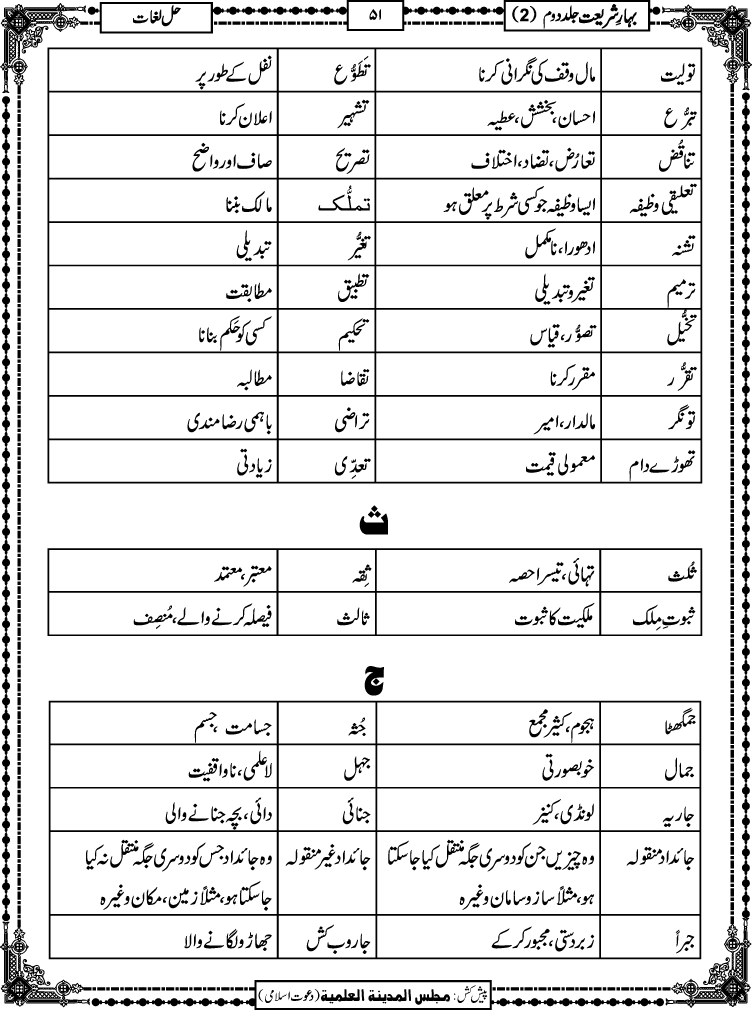 بہارِ شریعت جلد دوم (2)
۵۱
حل لغات
تولیت مال وقف کی نگرانی کرنا تَطَوُّع نفل کے طور پر
تبرُّع احسان، بخشش، عطیہ تشہیر اعلان کرنا
تناقُض تعارُض، تضاد، اختلاف تصریح صاف اور واضح
تعلیقی وظیفہ ایسا وظیفہ جو کسی شرط پر معلق ہو تملُّک مالک بننا
تشنہ ادھورا، نامکمل تغیُّر تبدیلی
ترمیم تغیر و تبدیلی تطبیق مطابقت
تخیُّل تصوُّر، قیاس تحکیم کسی کو حَکم بنانا
تقرُّر مقرر کرنا تقاضا مطالبہ
تونگر مالدار، امیر تراضی باہمی رضا مندی
تھوڑے دام معمولی قیمت تعدِّی زیادتی
ث
ثُلث تہائی، تیسرا حصہ ثِقہ معتبر، معتمد
ثبوتِ مِلک ملکیت کا ثبوت ثالث فیصلہ کرنے والے، مُنصِف
ج
جمگھٹا ہجوم، کثیر مجمع جُثہ جسامت ، جسم
جمال خوبصورتی جہل لاعلمی، ناواقفیت
جاریہ لونڈی، کنیز جنائی دائی، بچہ جنانے والی
جائداد منقولہ وہ چیزیں جن کو دوسری جگہ منتقل کیا جاسکتا جائداد غیر منقولہ وہ جائداد جس کو دوسری جگہ منتقل نہ کیا
ہو، مثلاً ساز و سامان وغیرہ جاسکتا ہو، مثلاً زمین، مکان وغیرہ
جبراً زبردستی، مجبور کرکے جاروب کش جھاڑو لگانے والا
پیش کش: مجلس المدینة العلمیة (دعوت اسلامی)